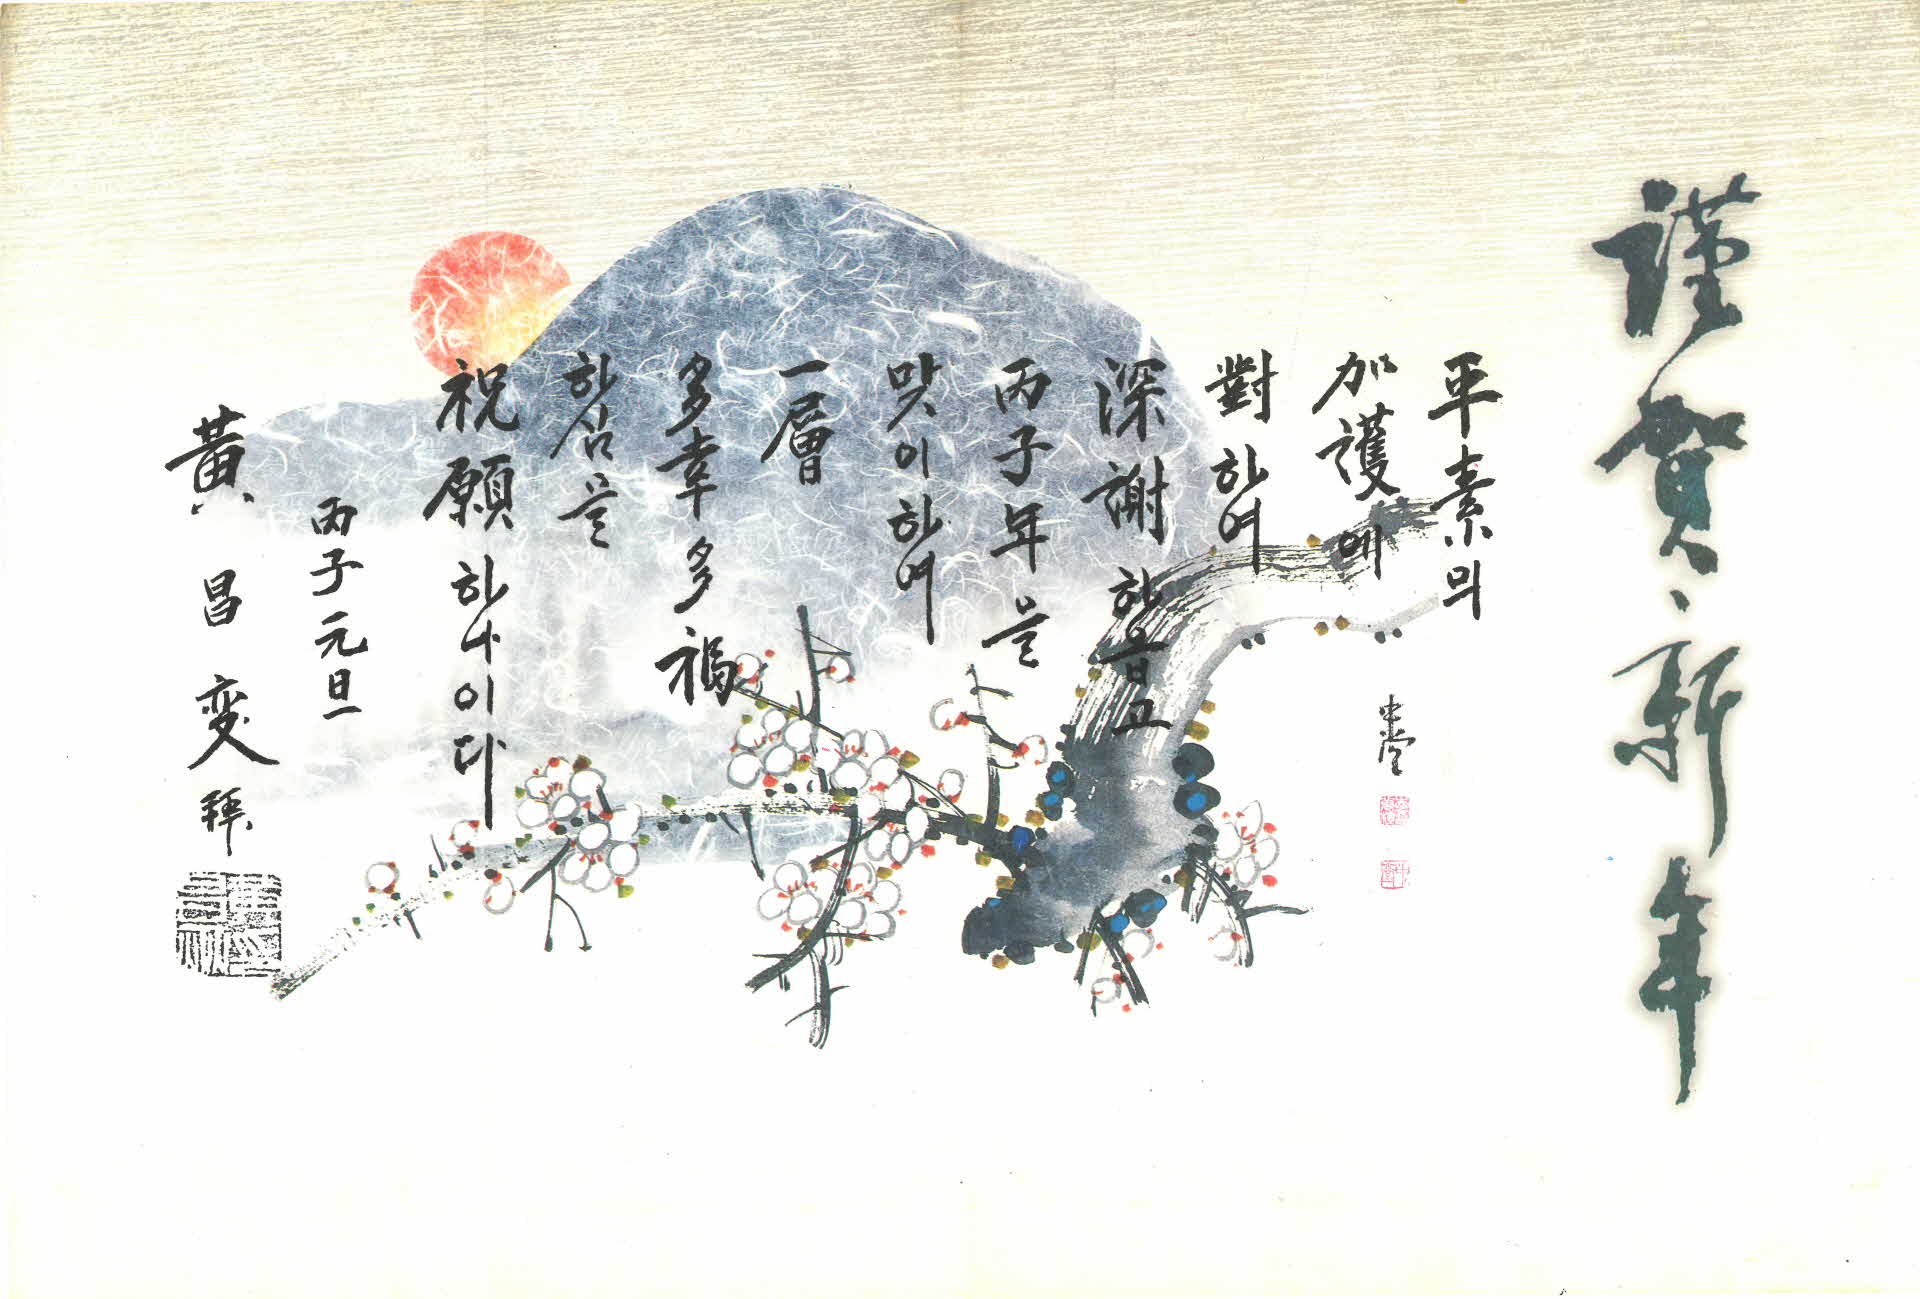 謹賀新年
平素의
加護에
對하여
深謝하옵고
丙子年을
맞이하여
一層
多幸多福
하심을
祝願하나이다
丙子元旦
黃昌變拜